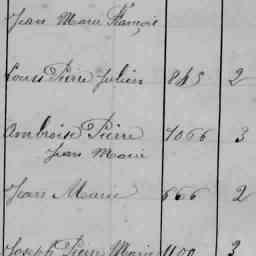 Jean Marie François
Louis Pierre Julien 845 2
Ambroise Pierre 1066 3
Jean Marie
Jean Marie 666 2
Joseph Pierre Marie 1100 3